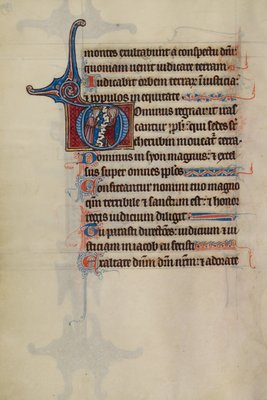 montes exultabunt a conspectu dñi
quoniam uenit iudicare terram
Iudicabit orbem terrar̄ ī iusticia:
et populos in equitate
Dominus regnauit iras
cantur pl̄i: qui sedes sr̄
cherubin moueat̄ terra
Dominus in syon magnus: et excel
sus super omnes pl̄os
Confiteantur nomini tuo magno
qm̄ terribile et sanctum est: et honor
regis iudicium diligit
Tu parasti directōes: iudicium et iu
sticiam in iacob tu fecisti
Exaltate dūm dm̄ nr̄m: et adorate